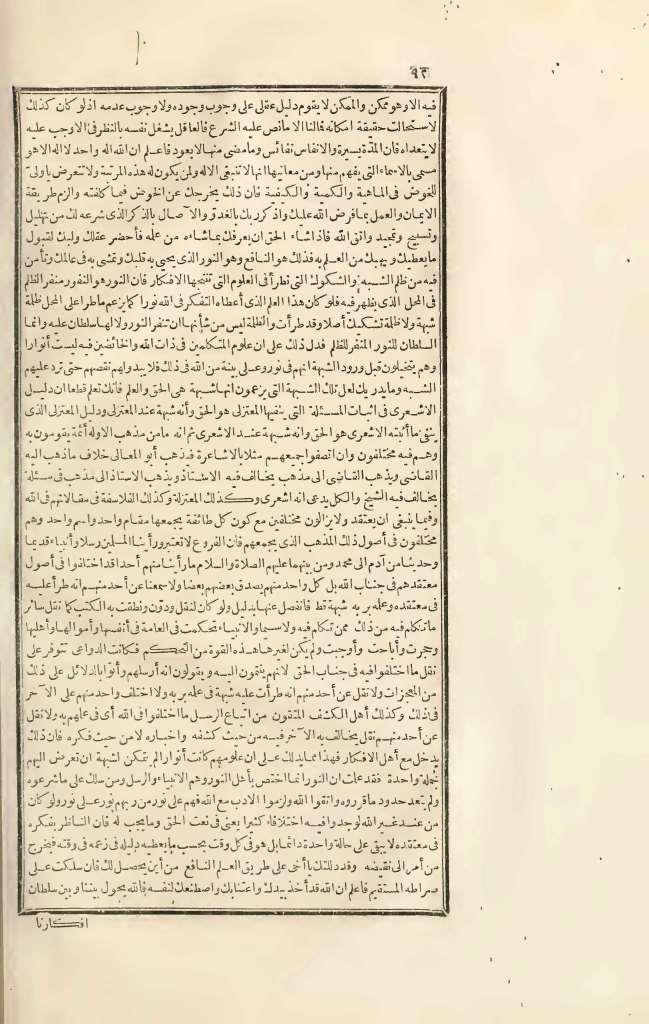 ٩٣
فيه الا وهو ممكن والممكن لا يقوم دليل عقلى على وجوب وجوده ولا وجوب عدمه اذ لو كان كذلك
لاستحالت حقيقة امكانه فالنا الا ما نص عليه الشرع فالعاقل يشغل نفسه بالنظر فى الاوجب عليه
لا يتعداه فان المدة يسيرة والانفاس نفائس وما مضى منها لا يعود فاعلم ان الله اله واحد لا اله الا هو
مسمى بالاسماء التى يفهم منها ومن معانيها انها لا تنبغى الا له ولمن يكون له هذه المرتبة ولا تتعرض يا ولىّ
للخوض فى الماهية والكمية والكيفية فان ذلك يخرجك عن الخوض فيما كلفته والزم طريقة
الايمان والعمل بما فرض الله عليك واذكر ربك بالغدو والآصال بالذكر الذى شرعه لك من تهليل
وتسبيح وتحميد واتق الله فاذا شاء الحق ان يعرفك بما شاءه من علمه فأحضر عقلك ولبك لقبول
ما يعطيك ويهبك من العلم به فذلك هو النافع وهو النور الذى يحيى به قلبك وتمشى به فى عالمك وتأمن
فيه من ظلم الشبه والشكوك التى تطرأ فى العلوم التى تنتجها الافكار فان النور هو النفور منفر الظلم
فى المحل الذى يظهر فيه فلو كان هذا العلم الذى أعطاه التفكر فى الله نورا كما يزعم ما طرأ على المحل ظلمة
شبهة ولا ظلمة تشكيك أصلا وقد طرأت والظلمة ليس من شأنها ان تنفر النور ولا لها سلطان عليه وانما
السلطان للنور المنفر للظلم فدل ذلك على ان علوم المتكلمين فى ذات الله والخائضين فيه ليست أنوارا
وهم يتخيلون قبل ورود الشبهة انهم فى نور وعلى بينة من الله فى ذلك فلا يبدو لهم نقصهم حتى ترد عليهم
الشبه وما يدريك لعل تلك الشبهة التى يزعمون انها شبهة هى الحق والعلم فانك تعلم قطعا ان دليل
الاشعرى فى اثبات المسئلة التى ينفيها المعتزلى هو الحق وأنه شبهة عند المعتزلى ودليل المعتزلى الذى
ينفى ما أثبته الاشعرى هو الحق وانه شبهة عند الاشعرى ثم انه ما من مذهب الا وله أئمة يقومون به
وهم فيه مختلفون وان اتصفوا جميعهم مثلا بالاشاعرة فيذهب أبو المعالى خلاف ما ذهب اليه
القاضى ويذهب القاضى الى مذهب يخالف فيه الاستاذ ويذهب الاستاذ الى مذهب فى مسئلة
يخالف فيه الشيخ والكل يدعى انه اشعرى وكذلك المعتزلة وكذلك الفلاسفة فى مقالاتهم فى الله
وفيما ينبغى ان يعتقد ولا يزالون مختلفين مع كون كل طائفة يجمعها مقام واحد واسم واحد وهم
مختلفون فى أصول ذلك المذهب الذى يجمعهم فان الفروع لا تعتبر ورأينا المسلمين رسلا وأنبياء قديما
وحديثا من آدم الى محمد ومن بينهما عليهم الصلاة والسلام ما رأينا منهم أحدا قد اختلفوا فى أصول
معتقدهم فى جناب الله بل كل واحد منهم يصدق بعضهم بعضا ولا سمعنا عن أحد منهم انه طرأ عليه
فى معتقده وعلمه بربه شبهة قط فانفصل عنها بدليل ولو كان لنقل ودوّن ونطقت به الكتب كما نقل سائر
ما تكلم فيه من ذلك ممن تكلم فيه ولا سيما والانبياء تحكمت فى العامة فى أنفسها وأموالها وأهليها
وحجرت وأباحت وأوجبت ولم يكن لغيرها هذه القوة من التحكم فكانت الدواعى تتوفر على
نقل ما اختلفوا فيه فى جناب الحق لانهم ينتمون اليه ويقولون انه أرسلهم وأتوا بالدلائل على ذلك
من المعجزات ولا نقل عن أحد منهم انه طرأت عليه شبهة فى علمه بربه ولا اختلف واحد منهم على الآخر
فى ذلك وكذلك أهل الكشف المتقون من اتباع الرسل ما اختلفوا فى الله أى فى علمهم به ولا نقل
عن أحد منهم نقل يخالف به الآخر فيه من حيث كشفه واخباره لا من حيث فكره فان ذلك
يدخل مع أهل الافكار فهذا مما يدلك على ان علومهم كانت أنوارا لم تتمكن لشبهة ان تعرض اليهم
جملة واحدة فقد علمت ان النور انما اختص بأهل النور وهم الانبياء والرسل ومن سلك على ما شرعوه
ولم يتعد حدود ما قرروه واتقوا الله ولزموا الادب مع الله فهم على نور من ربهم نور على نور ولو كان
من عند غير الله لوجدوا فيه اختلافا كثيرا يعنى فى نعت الحق وما يجب له فان الناظر بفكره
فى معتقده لا يبقى على حالة واحدة دائما بل هو فى كل وقت بحسب ما يعطيه دليله فى زعمه فى وقته فيخرج
من أمر الى نقيضه وقد دللتك يا أخى على طريق العلم النافع من أين يحصل لك فان سلكت على
صراطه المستقيم فاعلم ان الله قد أخذ بيدك واعتنى بك واصطنعك لنفسه فالله يحول بيننا وبين سلطان
افكارنا